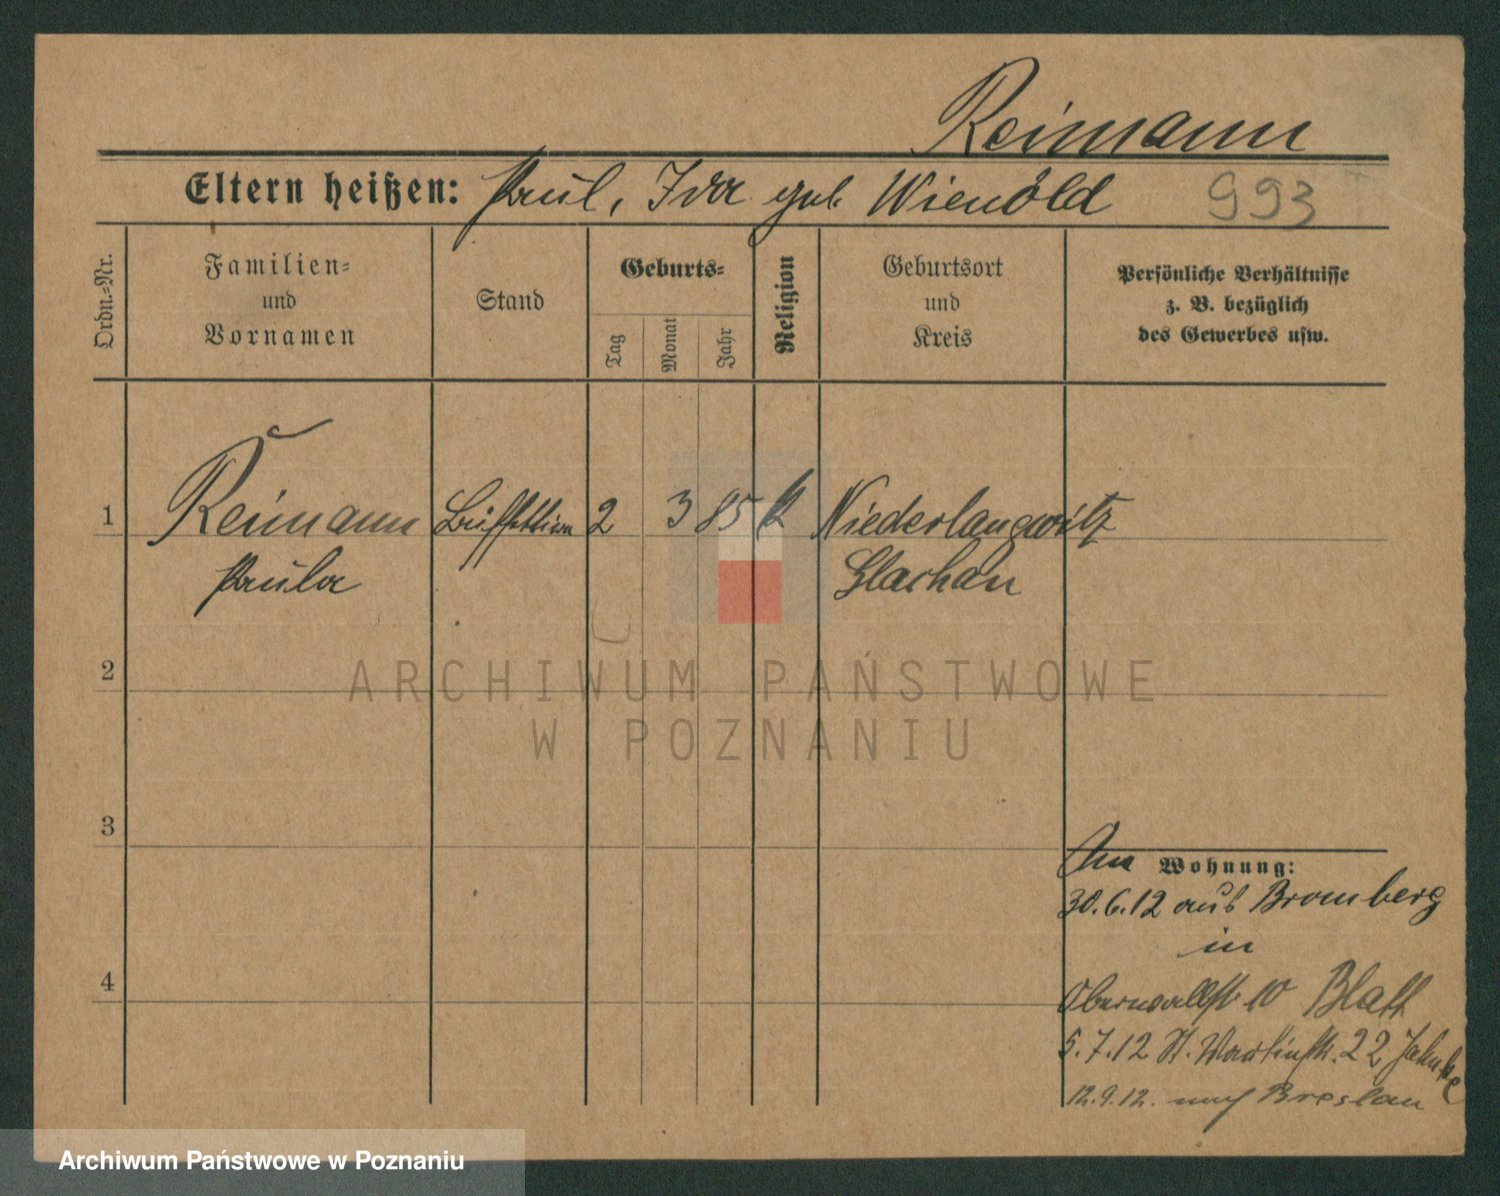 Reimann
Eltern heißen: Paul, Ida geb. Wienold 993
Ordn.-Nr.
Familien-
und
Vornamen
Stand
Geburts-
Tag
Monat
Jahr
Religion
Geburtsort
und
Kreis
Persönliche Verhältnisse
z. B. bezüglich
des Gewerbes usw.
1 Reimann Büffettiere 2 3 85 k Niederlungwitz
Paula Glachau
2
3
4
ARCHIWUM PAŃSTWOWE
W POZNANIU
Wohnung:
30.6.12 aus Bromberg
in
Oberwallstr 10 Blatt
5.7.12 St. Martinstr. 22 Jahnke
12.9.12. nach Breslau
Archiwum Państwowe w Poznaniu